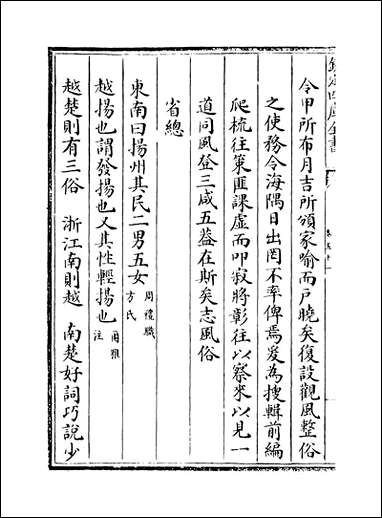 欽定四庫全書
令甲所布月吉所頒家喻而戶曉矣復設觀風整俗
之使務令海隅日出罔不率俾焉爰為搜輯前編
爬梳往策匪課虛而叩寂將彰往以察來以見一
道同風登三咸五葢在斯矣志風俗
省總
東南曰揚州其民二男五女周禮職方氏
越揚也謂發揚也又其性輕揚也爾雅注
越楚則有三俗 浙江南則越 南楚好詞巧說少